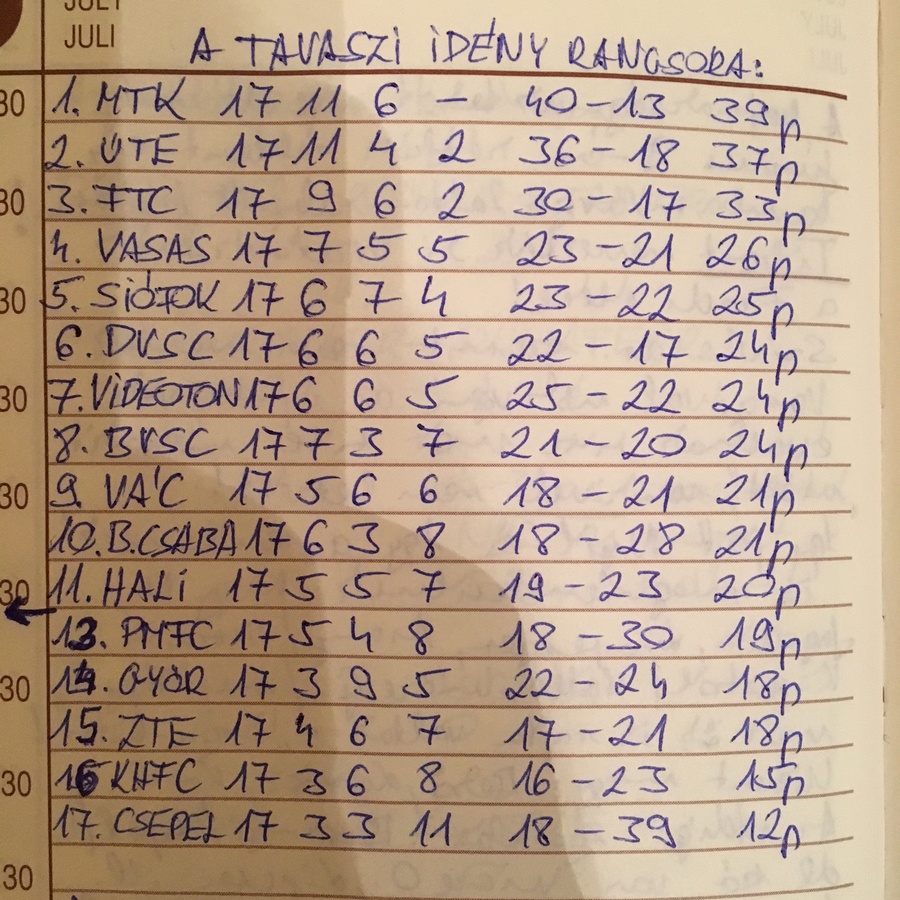 JULY
JULI
A TAVASZI IDÉNY RANGSORA:
30 1. MTK 17 11 6 – 40–13 39p
2. ÚTE 17 11 4 2 36–18 37p
30 3. FTC 17 9 6 2 30–17 33p
4. VASAS 17 7 5 5 23–21 26p
30 5. SIÓFOK 17 6 7 4 23–22 25p
6. DVSC 17 6 6 5 22–17 24p
30 7. VIDEOTON 17 6 6 5 25–22 24p
8. BVSC 17 7 3 7 21–20 24p
30 9. VÁC 17 5 6 6 18–21 21p
10. B.CSABA 17 6 3 8 18–28 21p
30 11. HALI 17 5 5 7 19–23 20p
13. PMFC 17 5 4 8 18–30 19p
30 14. GYŐR 17 3 9 5 22–24 18p
15. ZTE 17 4 6 7 17–21 18p
30 16 KHFC 17 3 6 8 16–23 15p
17. CSEPEL 17 3 3 11 18–39 12p
30